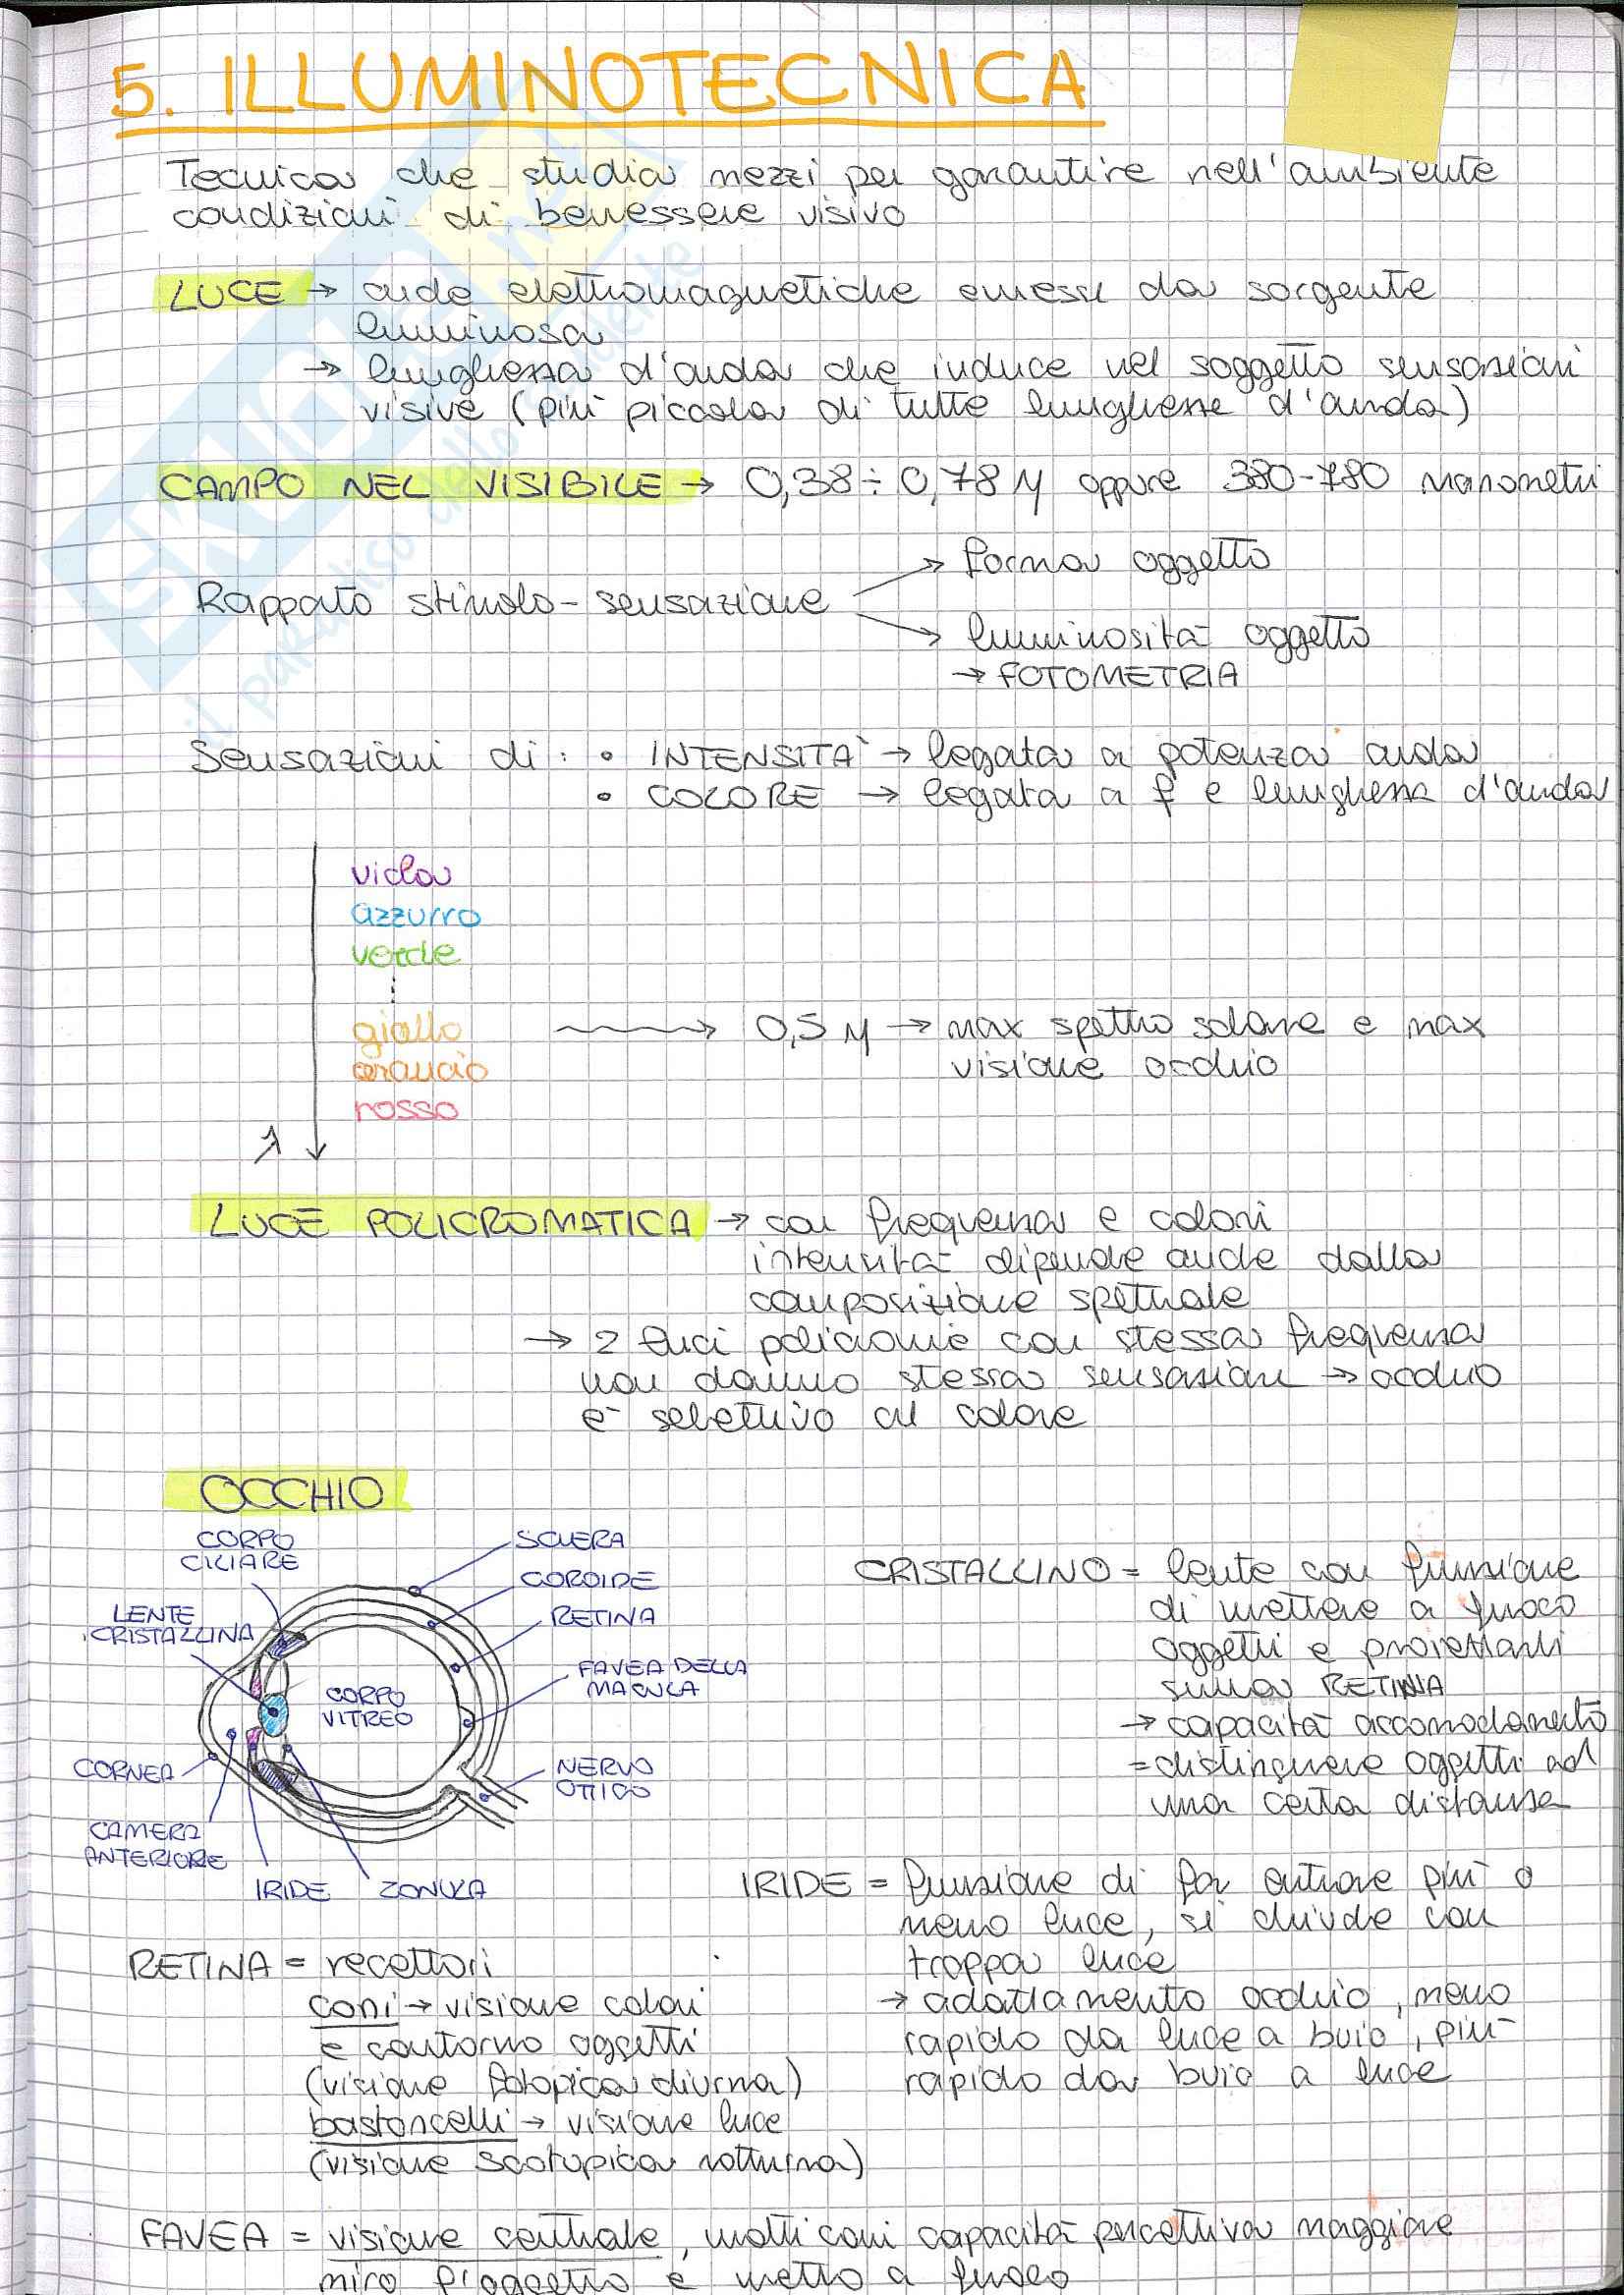 5. ILLUMINOTECNICA
Tecnica che studia mezzi per garantire nell'ambiente
condizioni di benessere visivo
LUCE → onde elettromagnetiche emesse da sorgente
luminosa
→ lunghezza d'onda che induce nel soggetto sensazioni
visive (più piccola di tutte lunghezze d'onda)
CAMPO NEL VISIBILE → 0,38 ÷ 0,78 μ oppure 380-780 nanometri
Rapporto stimolo-sensazione → forma oggetto
→ luminosità oggetto
→ FOTOMETRIA
Sensazioni di: • INTENSITÀ → legata a potenza onda
• COLORE → legata a f e lunghezza d'onda
viola
azzurro
verde
giallo → 0,5 μ → max spettro solare e max
visione occhio
arancio
rosso
λ
LUCE POLICROMATICA → con frequenza e colori
intensità dipende anche dalla
composizione spettrale
→ 2 luci policromie con stessa frequenza
non danno stessa sensazioni → occhio
è selettivo al colore
OCCHIO
CORPO
CILIARE
SCLERA
COROIDE
RETINA
LENTE
CRISTALLINA
FAVEA DELLA
MACULA
CORPO
VITREO
NERVO
OTTICO
CORNEA
CAMERA
ANTERIORE
IRIDE
ZONULA
CRISTALLINO = lente con funzione
di mettere a fuoco
oggetti e proiettarli
sulla RETINA
→ capacità accomodamento
= distinguere oggetti ad
una certa distanza
IRIDE = funzione di far entrare più o
meno luce, si chiude con
troppa luce
→ adattamento occhio, meno
rapido da luce a buio, più
rapido da buio a luce
RETINA = recettori
coni → visione colori
e contorno oggetti
(visione fotopica diurna)
bastoncelli → visione luce
(visione scotopica notturna)
FAVEA = visione centrale, molti coni capacità percettiva maggiore
miro l'oggetto e metto a fuoco
SKUOLA.net
il paradiso dello studente